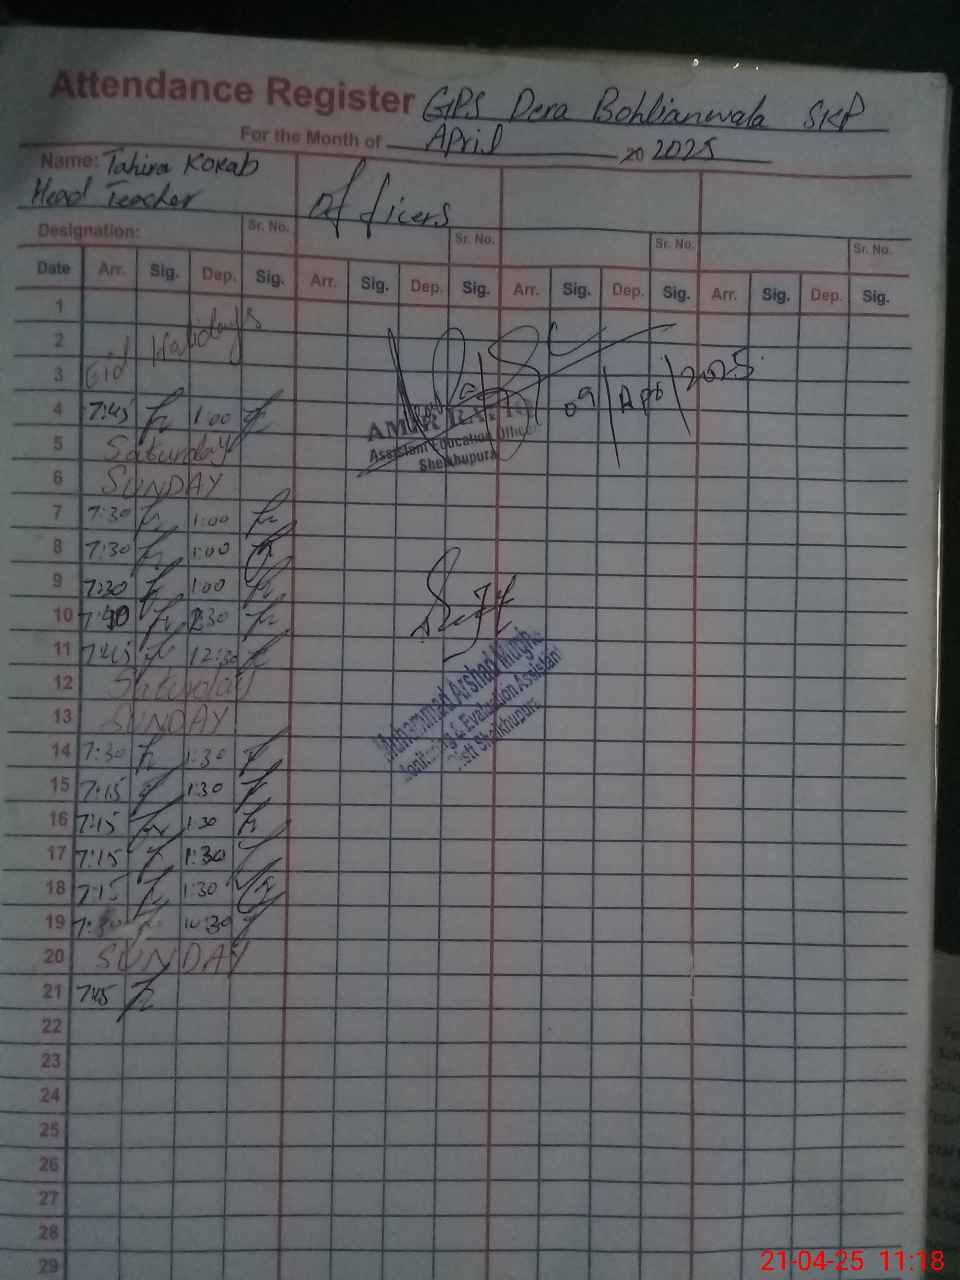 Attendance Register GPS Dera Bohlianwala SKP
For the Month of April 20 2025
Name: Tahira Kokab
Head Teacher
Officers
Designation: Sr. No. Sr. No. Sr. No. Sr. No.
Date Arr. Sig. Dep. Sig. Arr. Sig. Dep. Sig. Arr. Sig. Dep. Sig. Arr. Sig. Dep. Sig.
1
2 Holidays
3 Eid
09/Apr/2025
4 7:45 1:00
Assistant Education Officer
Sheikhupura
5 Saturday
6 SUNDAY
7 7:30 1:00
8 7:30 1:00
9 7:30 1:00
10
11 7:45 12:30
12 Saturday
13 SUNDAY
Muhammad Arshad
Monitoring & Evaluation Assistant
Distt Sheikhupura
14 7:30 1:30
15 7:15 1:30
16 7:15 1:30
17 7:15 1:30
18 7:15 1:30
19 7:30 10:30
20 SUNDAY
21 7:45
22
23
24
25
26
27
28
29
21-04-25 11:18